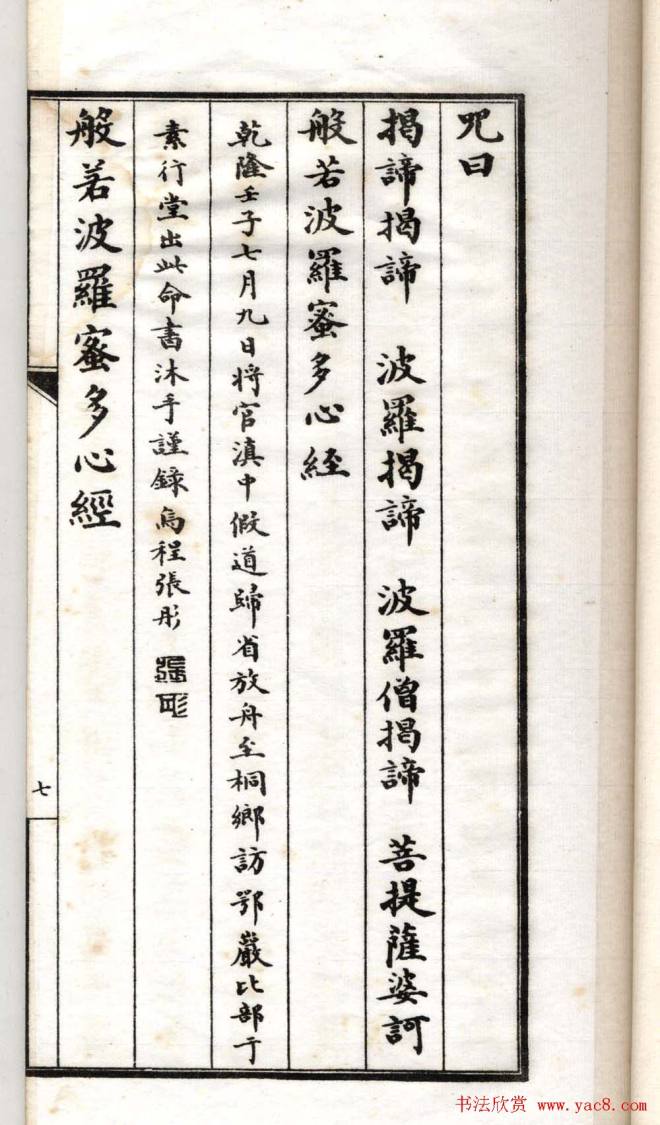 咒曰
揭諦揭諦 波羅揭諦 波羅僧揭諦 菩提薩婆訶
般若波羅蜜多心経
乾隆壬子七月九日將官滇中假道歸省放舟至桐鄉訪鄂巖比部于
素行堂出此命書沐手謹錄烏程張彤
張彤
般若波羅蜜多心經
七
书法欣赏 www.yac8.com